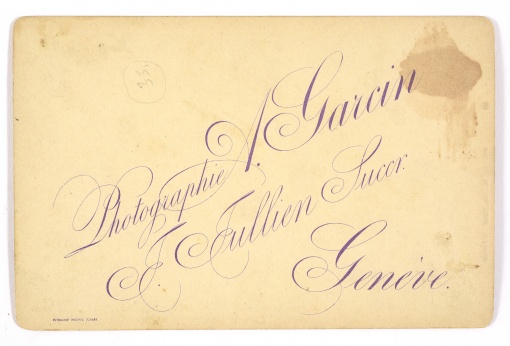 33.
Photographie A. Garcin
F. Jullien Succr.
Genève.